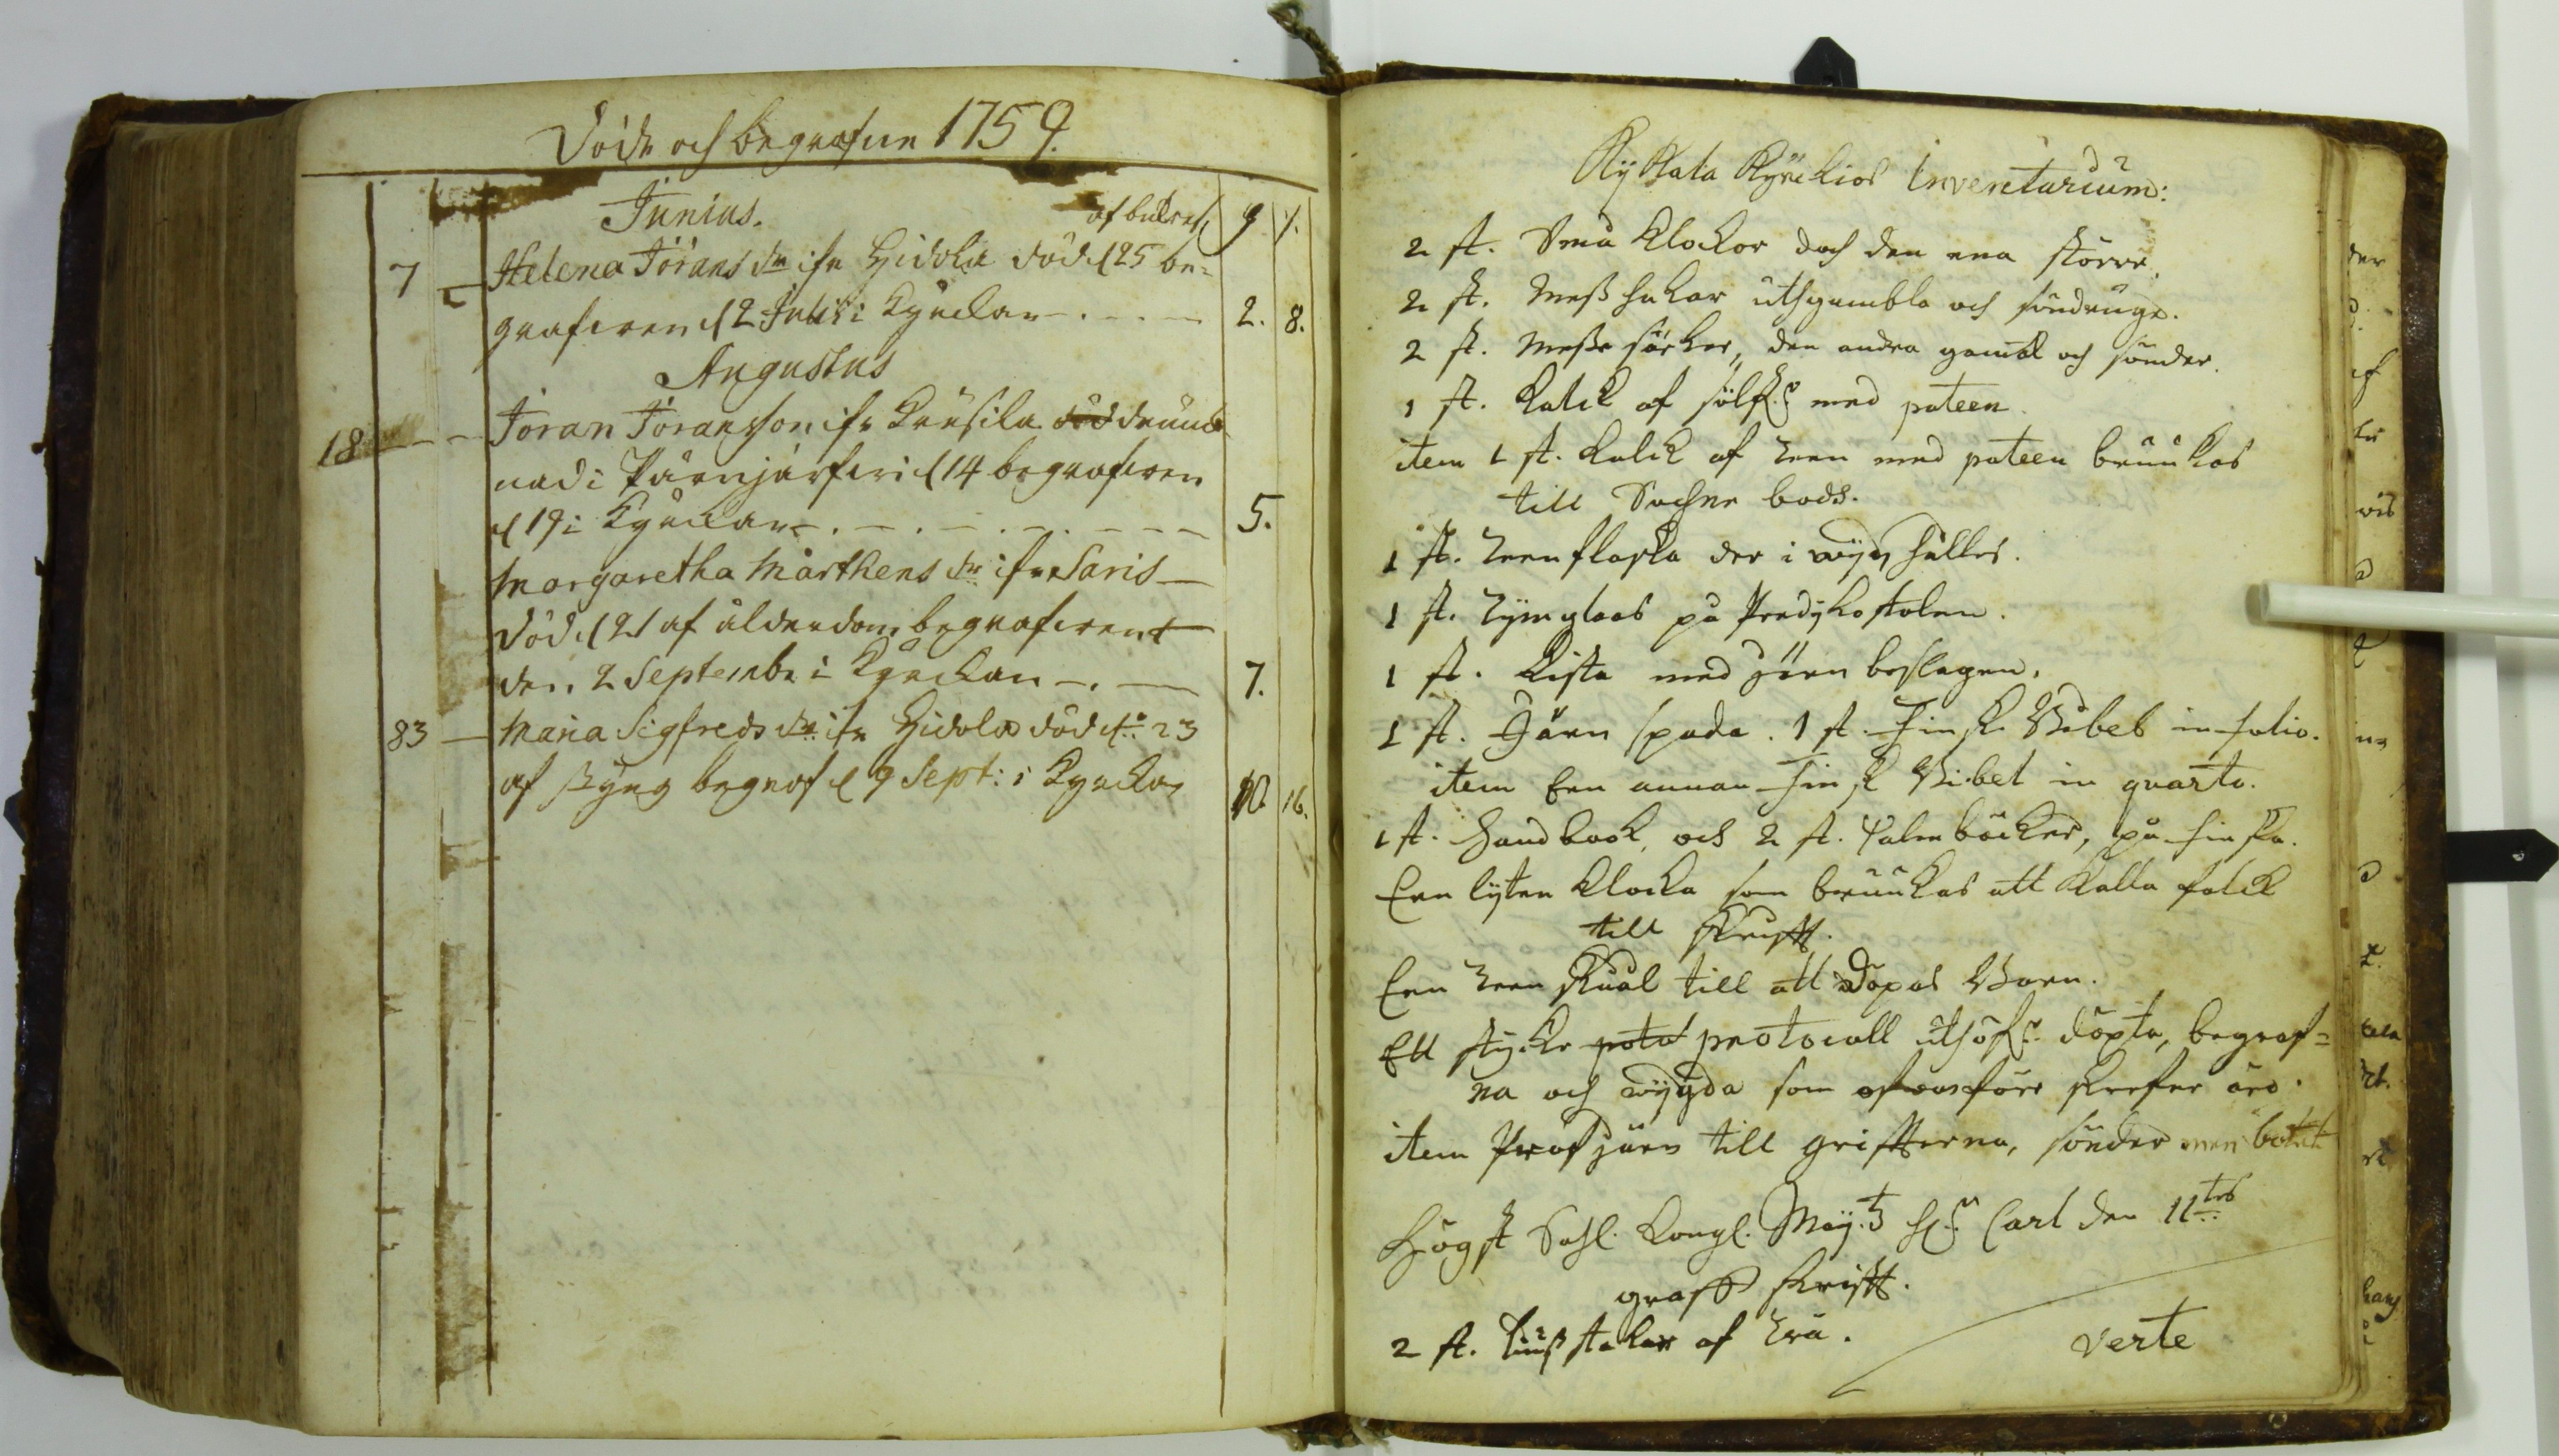 Döde och begrafne 1759.
Junius.
7 Helena Jörans dr ifr Hidola död d 25 be-
grafwen d 2 Julii i Kyrckan 2. 8.
Augustus
18 Jöran Jöransson ifr Kausila död drunck-
nad i Pärnjärfwi d 14 begrafwen
d 19 i Kyrckan 5.
Margaretha Mårthens dr ifrn Saris
död d 21 af ålderdom begrafwen
den 2 Septembr i Kyrckan 7.
83 Maria Sigfreds dr ifr Hidola död d 23
af begrof d 9 Sept: i Kyrckan 10. 16.
Kyrkios Inventarium:
2 st. Små Klockor doch den ena större.
2 st. Mess hakar uthgambla och söndruge.
2 st. Messe särkar, den andra gamal och sönder.
1 st. Kalck af sölf med pateen.
item 1 st. Kalck af Teen med pateen bruukas
till Sochne bods.
1 st. Teenflaska der i wijn hålles.
1 st. Tijmglaas på Predijkostolen.
1 st. Kista med järn beslagen.
1 st. Järn spada. 1 st. Finsk Bibel in folio.
item Een annan Finsk Bibel in quarto.
1 st. Handbook, och 2 st. Psalmböcker, på finska.
Een lijten Klocka som bruukas att Kalla folck
till skrifft.
Een Teen skåål till att döpas Barn.
Ett stycke protocoll öf döpta, begraf-
na och wijgda som skrefne äro.
item järn till grifterna, sönder men botat
Högst Sahl. Kongl. May:tz Carl den 11tes
graff skrifft.
2 st. liusstakar af Trä.
verte